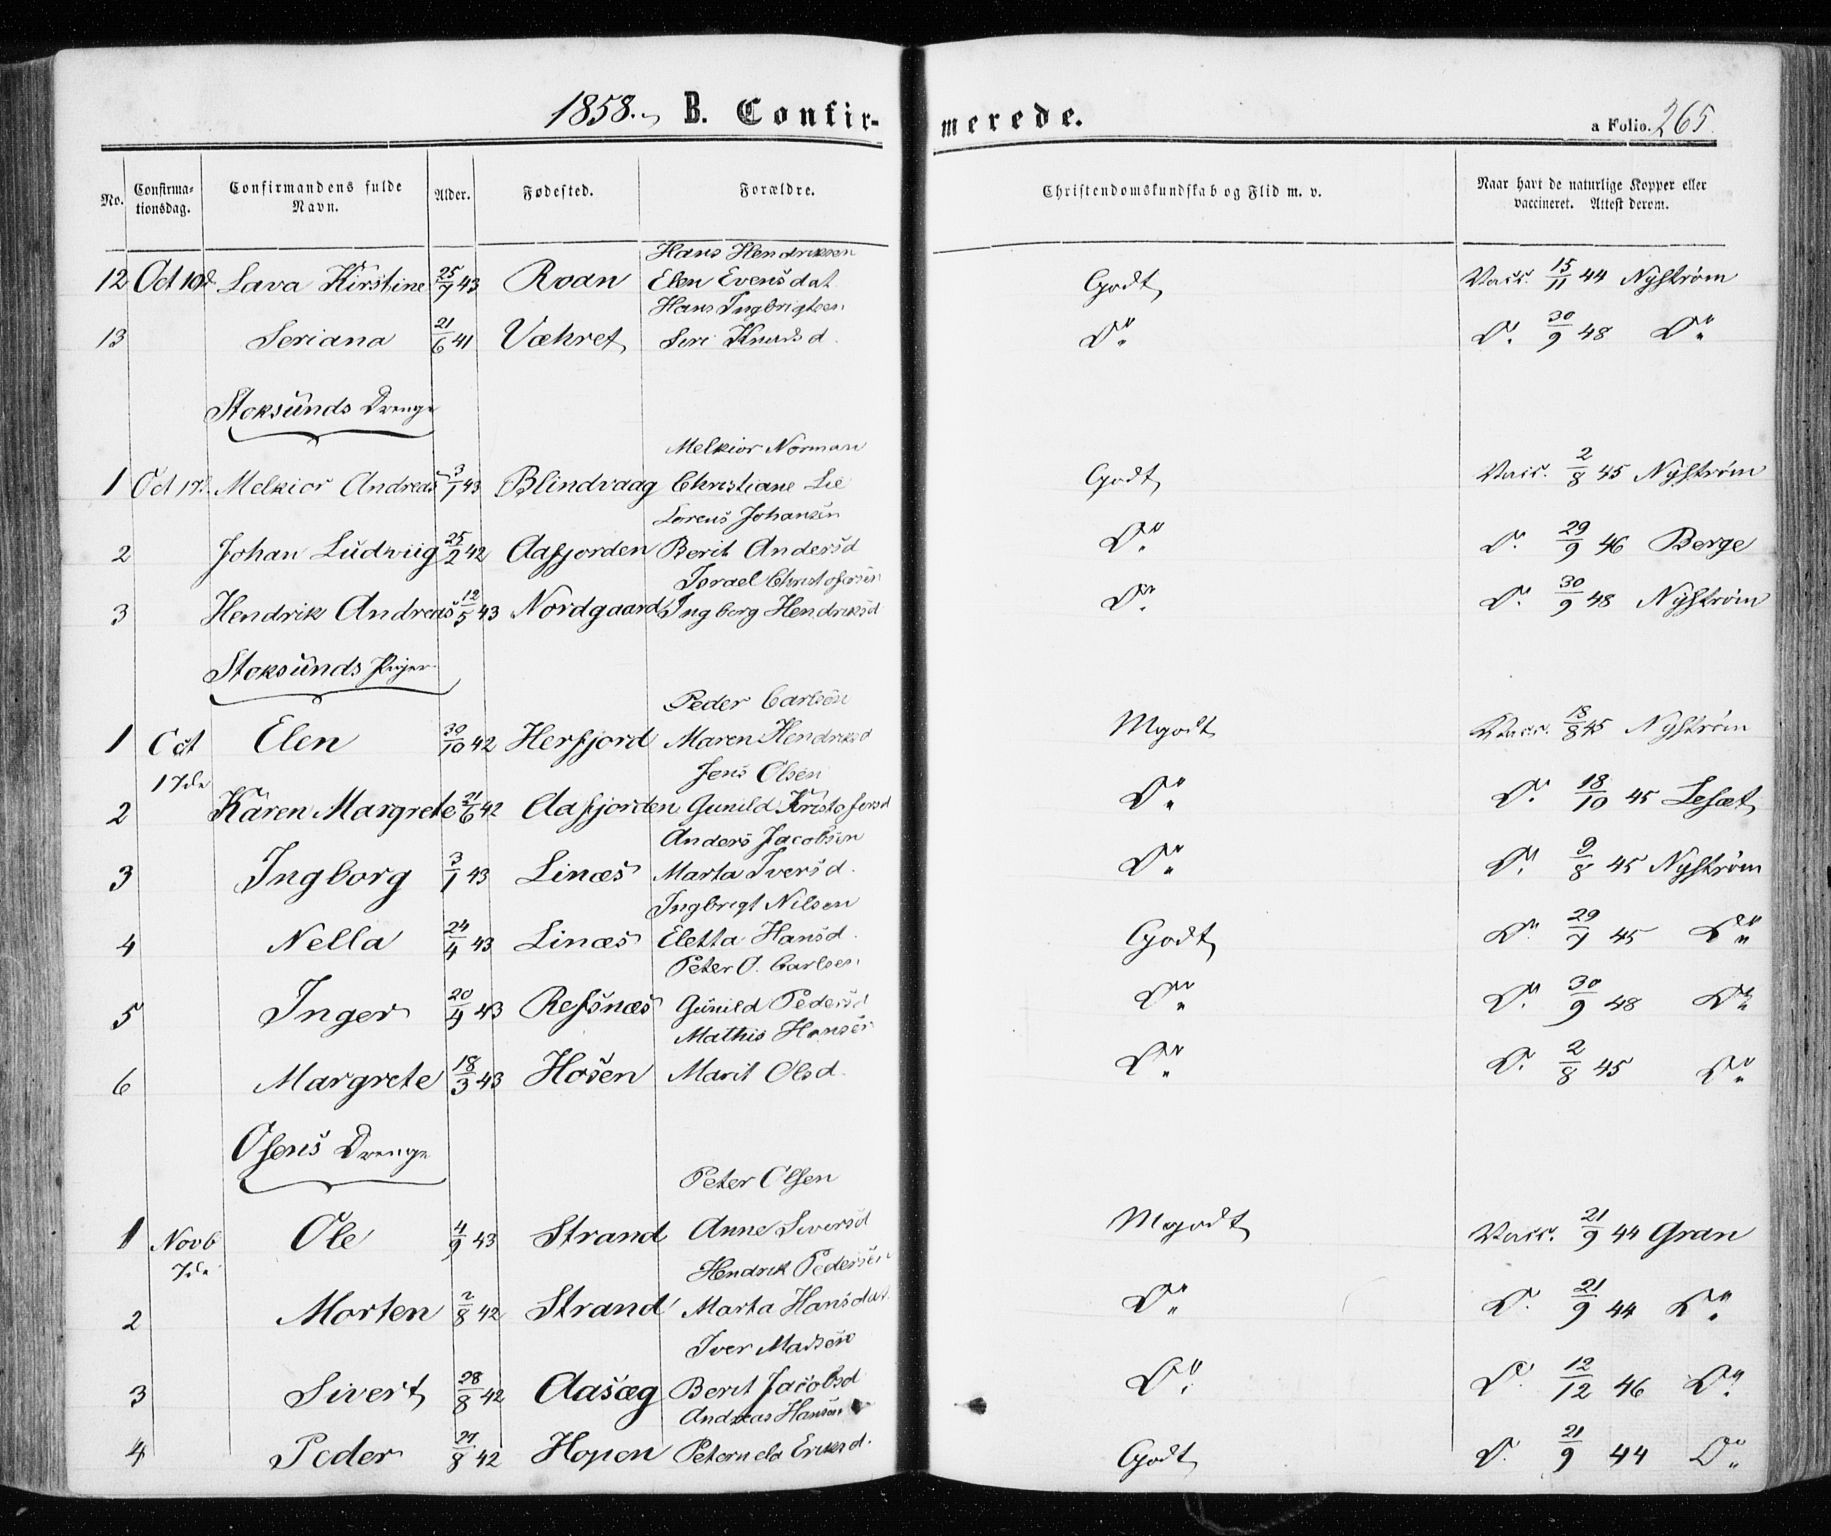 1858. B. Confir- merede. a Folio. 265.
No. Confirma- tionsdag. Confirmandens fulde Navn. Alder. Fødested. Forældre. Christendomskundskab og Flid m. v. Naar havt de naturlige Kopper eller vaccineret. Attest derom.
Hans Hendriksen
12 Oct 10d Lava Kirstine 25/7 43 Roan Elen Evensdat. Godt Vacc. 15/11 44 Nyström
Hans Ingbrigtsen
13 Seriana 21/6 41 Vækret Siri Knudsd. Do 30/9 48 Do
Stoksunds Drenge
Melkior Norman
1 Oct 17. Melkior Andreas 3/1 43 Blindvaag Christiane Lie Godt Vacc. 2/8 45 Nyström
Lorens Johansen
2 Johan Ludviig 25/2 42 Aafjorden Berit Andersd Do D. 29/9 46 Berge
Israel Christofersen
3 Hendrik Andreas 12/5 43 Nordgaard Ingborg Hendriksd Do D. 30/9 48 Nyström
Stoksunds Piger
Peder Carlsen
1 Oct Elen 30/10 42 Herfjord Maren Hendriksd Mgodt Vacc. 18/8 45 Nyström
17de Jens Olsen
2 Karen Margrete 21/6 42 Aafjorden Gunild Kristofersd Do D. 18/10 45 Lesæt
Anders Jacobsen
3 Ingborg 3/1 43 Linæs Marta Iversd. Do D. 9/8 45 Nyström
Ingbrigt Nilsen
4 Nella 24/4 43 Linæs Eletta Hansd. Godt D. 29/7 45 Do
Peter O. Carlsen
5 Inger 20/4 43 Refsnæs Gunild Pedersd Do D. 30/9 48 Do
Mathis Hansen
6 Margrete 18/3 43 Hosen Marit Olsd. Do D. 2/8 45 Do
Osens Drenge
Peter Olsen
1 Novb Ole 4/9 43 Strand Anne Siversd Mgodt Vacc. 21/9 44 Gran
7de Hendrik Pedersen
2 Morten 2/8 42 Strand Marta Hansdat. Do D. 21/9 44 Do
Iver Madsen
3 Sivert 28/8 42 Aasæg Berit Jacobsd Do D. 12/12 46 Do
Andreas Hansen
4 Peder 27/8 42 Hopen Peternela Eriksd. Godt D. 21/9 44 Do